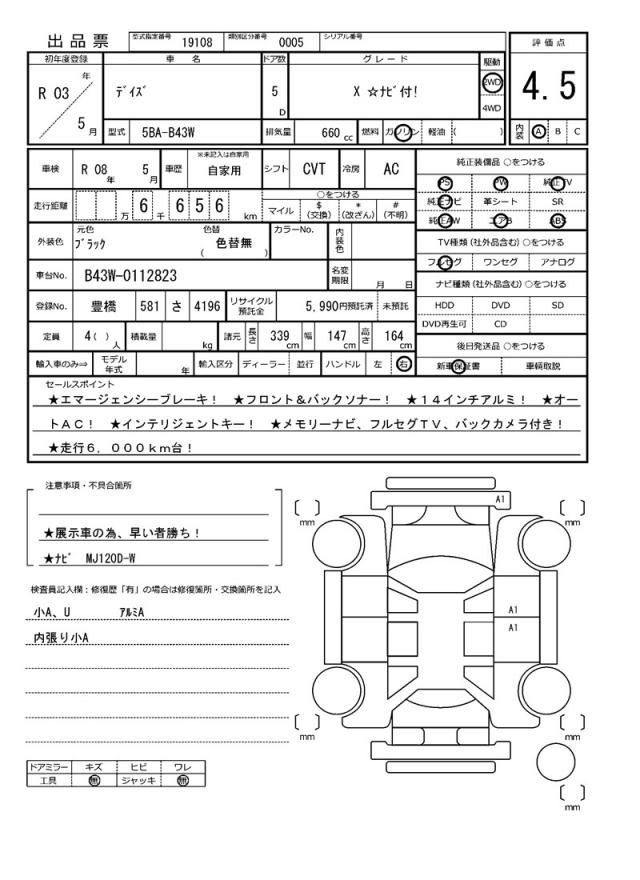 出品票 型式指定番号 19108 類別区分番号 0005 シリアル番号
評価点
4.5
内装 A B C
初年度登録 車名 ドア数 グレード 駆動
R 03 年 5 月 ﾃﾞｲｽﾞ 5 D X ☆ﾅﾋﾞ付! 2WD 4WD
型式 5BA-B43W 排気量 660 cc 燃料 ガソリン 軽油 ( )
車検 R 08 年 5 月 車歴 ※未記入は自家用 自家用 シフト CVT 冷房 AC
走行距離 万 6 千 6 5 6 km ○をつける
マイル $(交換) *(改ざん) #(不明)
外装色 元色 ﾌﾞﾗｯｸ 色替 ( 色替無 ) カラーNo. 内装色
車台No. B43W-0112823 名変期限 月 日
登録No. 豊橋 581 さ 4196 リサイクル預託金 5,990円預託済 未預託
定員 4( ) 人 積載量 kg 諸元 長さ 339 cm 幅 147 cm 高さ 164 cm
輸入車のみ⇒ モデル年式 年 輸入区分 ディーラー 並行 ハンドル 左 右
純正装備品 ○をつける
PS PW 純正TV
純正ナビ 革シート SR
純正AW エアB ABS
TV種類(社外品含む) ○をつける
フルセグ ワンセグ アナログ
ナビ種類(社外品含む) ○をつける
HDD DVD SD
DVD再生可 CD
後日発送品 ○をつける
新車保証書 車輌取説
セールスポイント
★エマージェンシーブレーキ! ★フロント&バックソナー! ★14インチアルミ! ★オー
トAC! ★インテリジェントキー! ★メモリーナビ、フルセグTV、バックカメラ付き!
★走行6，000km台!
注意事項・不具合箇所
★展示車の為、早い者勝ち!
★ﾅﾋﾞ MJ120D-W
検査員記入欄：修復歴「有」の場合は修復箇所・交換箇所を記入
小A、U ｱﾙﾐA
内張り小A
ドアミラー キズ ヒビ ワレ
工具 無 ジャッキ 無
A1
mm
mm
A1
A1
mm
mm
mm